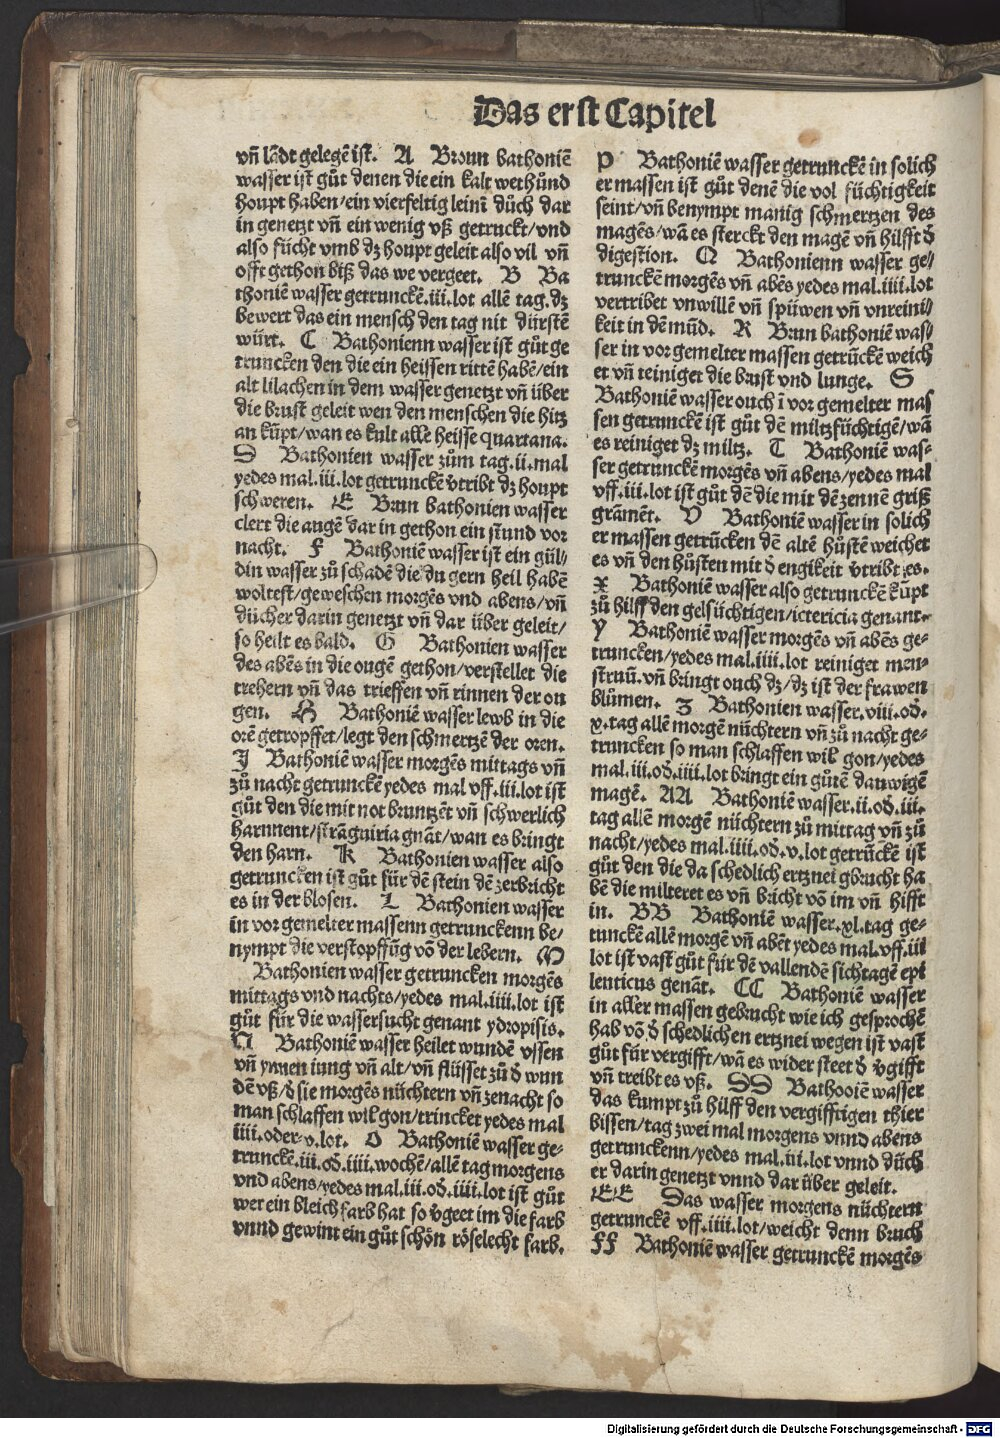 Das erst Capitel
vñ lādt gelegē ist. A Broun bathoniē
wasser ist gůt denen die ein kalt wethůnd
houpt haben/ein vierfeltig leinī důch dar
in genetzt vñ ein wenig vß getruckt/vnd
also fücht vmb dz houpt geleit also vil vñ
offt gethon biß das we vergeet. B Ba
thoniē wasser getrunckē.iii.lot allē tag.dz
bewert das ein mensch den tag nit dürstē
würt. C Bathonienn wasser ist gůt ge
truncken den die ein heissen rittē habē/ein
alt lilachen in dem wasser genetzt vñ über
die brust geleit wen den menschen die hitz
an kūpt/wan es kült alle heisse quartana.
D Bathonien wasser zům tag.ii.mal
yedes mal.iii.lot getrunckē v̄tribt dz houpt
schweren. E Brun bathonien wasser
clert die augē dar in gethon ein stund vor
nacht. F Bathoniē wasser ist ein gül/
din wasser zů schadē die du gern heil habē
woltest/geweschen morgēs vnd abens/vñ
dücher darin genetzt vñ dar über geleit/
so heilt es bald. G Bathonien wasser
des abēs in die ougē gethon/verstellet die
trehern vñ das trieffen vñ rinnen der ou
gen. H Bathoniē wasser lewb in die
orē getropffet/legt den schmertzē der oren.
J Bathoniē wasser morgēs mittags vñ
zů nacht getrunckē yedes mal vff.iii.lot ist
gůt den die mit not bruntzēt vñ schwerlich
harnnent/strāguiria gnāt/wan es bringt
den harn. K Bathonien wasser also
getruncken ist gůt für dē stein dē zerbricht
es in der blosen. L Bathonien wasser
in vor gemelter massenn getrunckenn be/
nympt die verstopffūg vō der lebern. M
Bathonien wasser getruncken morgēs
mittags vnd nachts/yedes mal.iiii.lot ist
gůt für die wassersucht genant ydropisis.
N Bathoniē wasser heilet wundē vssen
vñ ynnen iung vñ alt/vñ flüsset zů d̄ wun
dē vß/d̄ sie morgēs nüchtern vñ zenacht so
man schlaffen wil gon/trincket yedes mal
iiii.oder.v.lot. O Bathoniē wasser ge-
trunckē.iii.od̄.iiii.wochē/allē tag morgens
vnd abens/yedes mal.iii.od̄.iiii.lot ist gůt
wer ein bleich farb hat so v̄geet im die farb
vnnd gewint ein gůt schön röselecht farb.
P Bathoniē wasser getrunckē in solich
er massen ist gůt denē die vol füchtigkeit
seint/vñ benympt manig schmertzen des
magēs/wā es sterckt den magē vñ hilfft d̄
digestion. Q Bathonienn wasser ge/
trunckē morgēs vñ abēs yedes mal.iiii.lot
vertribet vnwillē vñ spüwen vñ vnreini/
keit in dē mūd. R Brun bathoniē was/
ser in vor gemelter massen getrūckē weich
et vñ reiniget die brust vnd lunge. S
Bathoniē wasser ouch ī vor gemelter mas
sen getrunckē ist gůt dē miltzsüchtigē/wā
es reiniget dz miltz. T Bathoniē was-
ser getrunckē morgēs vñ abens/yedes mal
vff.iii.lot ist gůt dē die mit dē zennē griß
gramēt. V Bathoniē wasser in solich
er massen getrūcken dē altē hůstē weichet
es vñ den hůsten mit d̄ engikeit v̄tribt es.
X Bathoniē wasser also getrunckē kūpt
zů hilff den gelsüchtigen/ictericia genant.
Y Bathoniē wasser morgēs vñ abēs ge-
truncken/yedes mal.iiii.lot reiniget men-
struū.vñ bringt ouch dz/dz ist der frawen
blůmen. Z Bathonien wasser.viii.od̄.
x.tag allē morgē nüchtern vñ zů nacht ge-
truncken so man schlaffen wil gon/yedes
mal.iii.od̄.iiii.lot bringt ein gůtē dauwigē
magē. AA Bathoniē wasser.ii.od̄.iii.
tag allē morgē nüchtern zů mittag vñ zů
nacht/yedes mal.iiii.od̄.v.lot getrūckē ist
gůt den die da schedlich ertznei gbrucht ha
bē die milteret es vñ bricht vō im vñ hifft
in. BB Bathoniē wasser.xl.tag ge-
tunckē allē morgē vñ abēt yedes mal.vff.iii
lot ist vast gůt für dē vallendē sichtagē epi
lenticus genāt. CC Bathoniē wasser
in aller massen gebrucht wie ich gesprochē
hab vō d̄ schedlichen ertznei wegen ist vast
gůt für vergifft/wā es wider steet d̄ v̄gifft
vñ treibt es vß. DD Bathooiē wasser
das kumpt zů hilff den vergifftigen thier
bissen/tag zwei mal morgens vnnd abens
getrunckenn/yedes mal.iii.lot vnnd düch
er darin genetzt vnnd dar über geleit.
EE Das wasser morgens nüchtern
getrunckē vff.iiii.lot/weicht denn bruch
FF Bathoniē wasser getrunckē morgēs
Digitalisierung gefördert durch die Deutsche Forschungsgemeinschaft - DFG